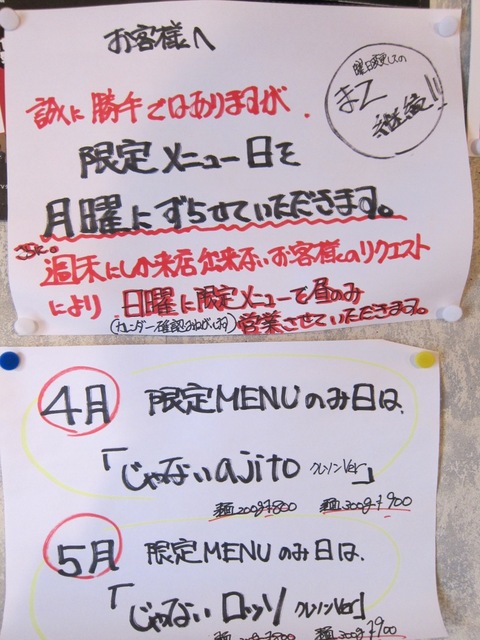 お客様へ
曜日変更しての
まさ
誠に勝手ではありますが、
限定メニュー日を
月曜にずらせていただきます。
週末にしか来店出来ないお客様のリクエスト
により 日曜に限定メニューで昼のみ
(カレンダー確認おねがいします) 営業させていただきます。
4月 限定MENUのみ日は、
「じゃないajito クレソンVer」
麺200g¥800 麺300g¥900
5月 限定MENUのみ日は、
「じゃない ロッソ クレソンVer」
麺200g¥800 麺300g¥900